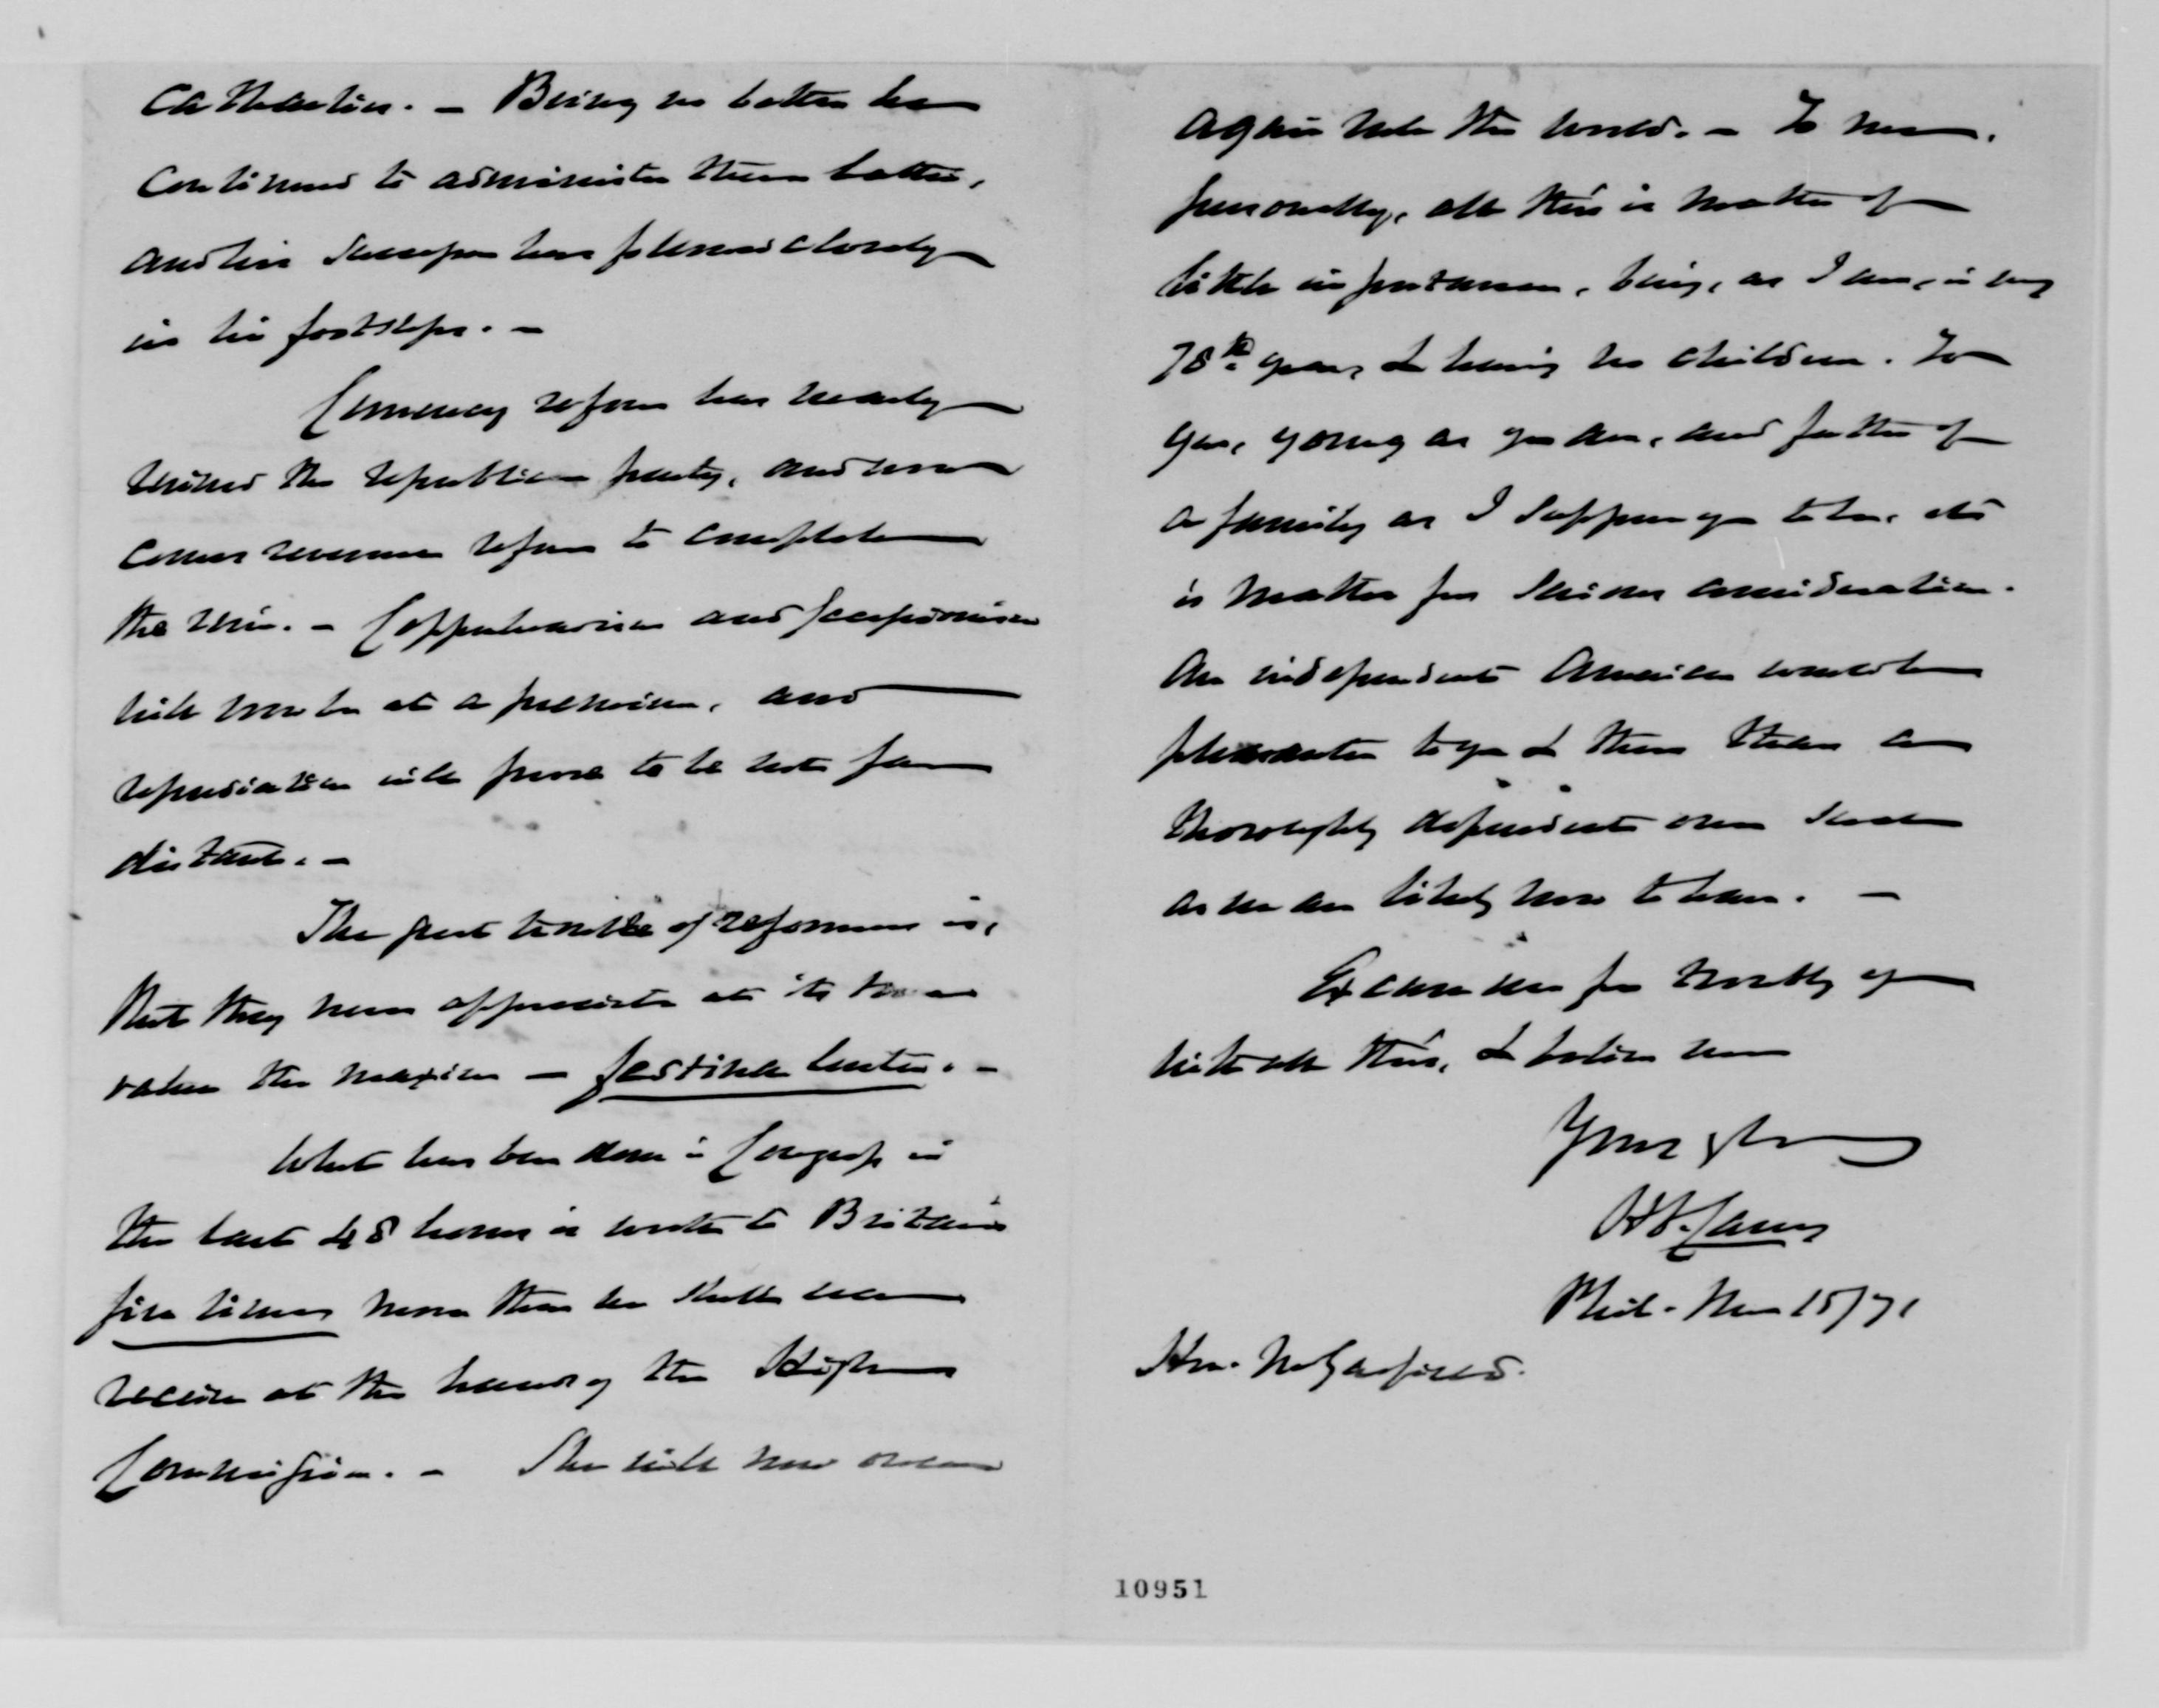 Cathartics. - Being no better he
continued to administer them latter,
and his successor has followed closely
in his footsteps. -
Currency reform has nearly
ruined the republican party, and now
comes revenue reform to complete
the ruin. - Copperheadism and secessionism
will now be at a premium, and
repudiation will prove to be not far
distant. -
The great trouble of reformers is,
that they never appreciate at its true
value the maxim - festina lente. -
What has been done in Congress in
the last 48 hours is worth to Britain
five times more than she shall
receive at the hands of the High
Commission. - She will now
again rule the world. - To me,
personally, all this is matter of
little importance, being, as I am, in my
78th year, & having no children. To
you, young as you are, and father of
a family as I suppose you to be, it
is matter for serious consideration.
An independent America would be
pleasanter to you & them than a
thoroughly dependent one such
as we are likely now to have. -
Excuse me for troubling you
with all this, & believe me
Yours truly
H C. Carey
Phil. Mar 15/71
Hon. Mr Garfield.
10951